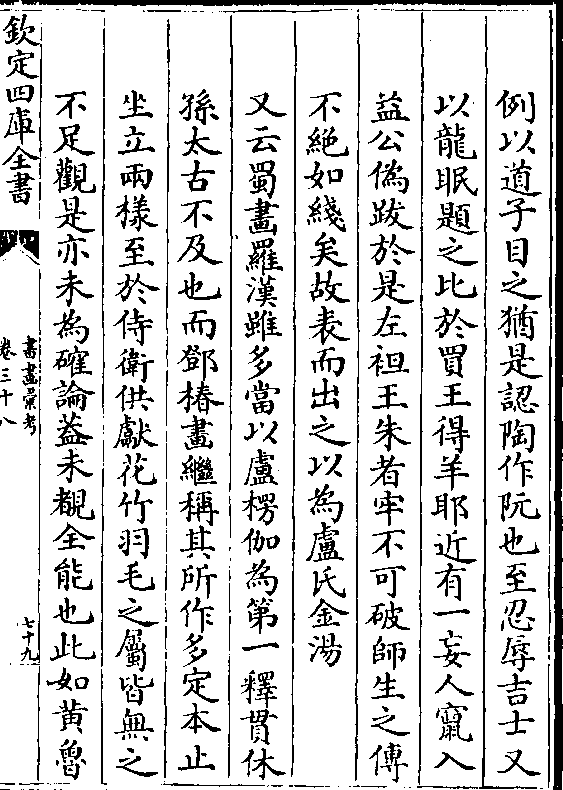 例以道子目之猶是認陶作阮也至忍辱吉士又
以龍眠題之比於買王得羊耶近有一妄人竄入
益公偽跋於是左袒王朱者牢不可破師生之傳
不絕如綫矣故表而出之以為盧氏金湯
又云蜀畫羅漢雖多當以盧楞伽為第一釋貫休
孫太古不及也而鄧椿畫繼稱其所作多定本止
坐立兩樣至於侍衛供獻花竹羽毛之屬皆無之
不足觀是亦未為確論蓋未覩全能也此如黄魯
欽定四庫全書
書畫彚考
卷三十八
七十九